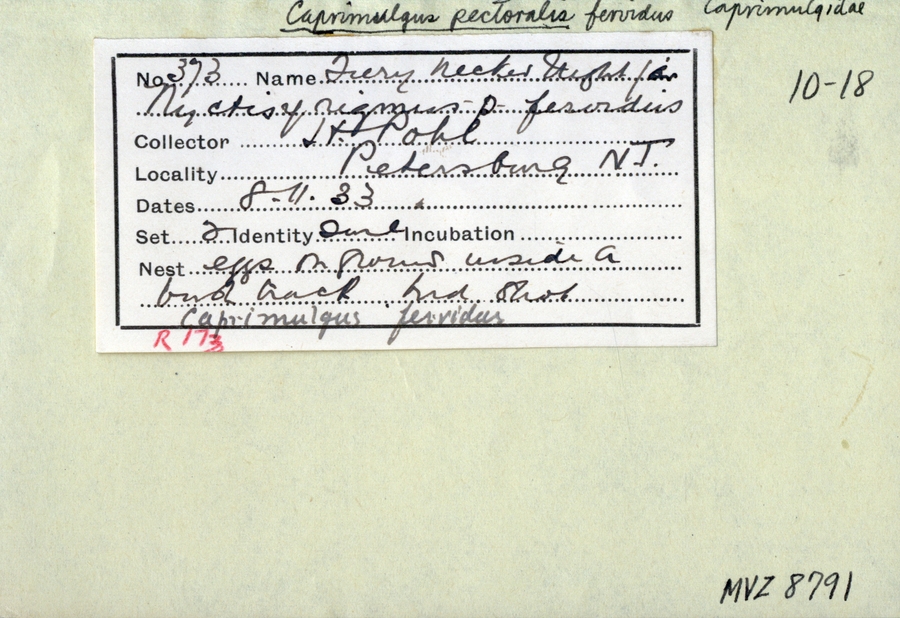 Caprimulgus pectoralis fervidus Caprimulgidae
10-18
No. 373 Name Fiery Necked Nightjar
Nyctisyrigmus p. fervidus
Collector J.H. Pohl
Locality Pietersburg N.T.
Dates 8-11.33
Set 2 Identity Sure Incubation
Nest eggs on ground inside a
buck track bird shot
Caprimulgus fervidus
R 173
MVZ 8791